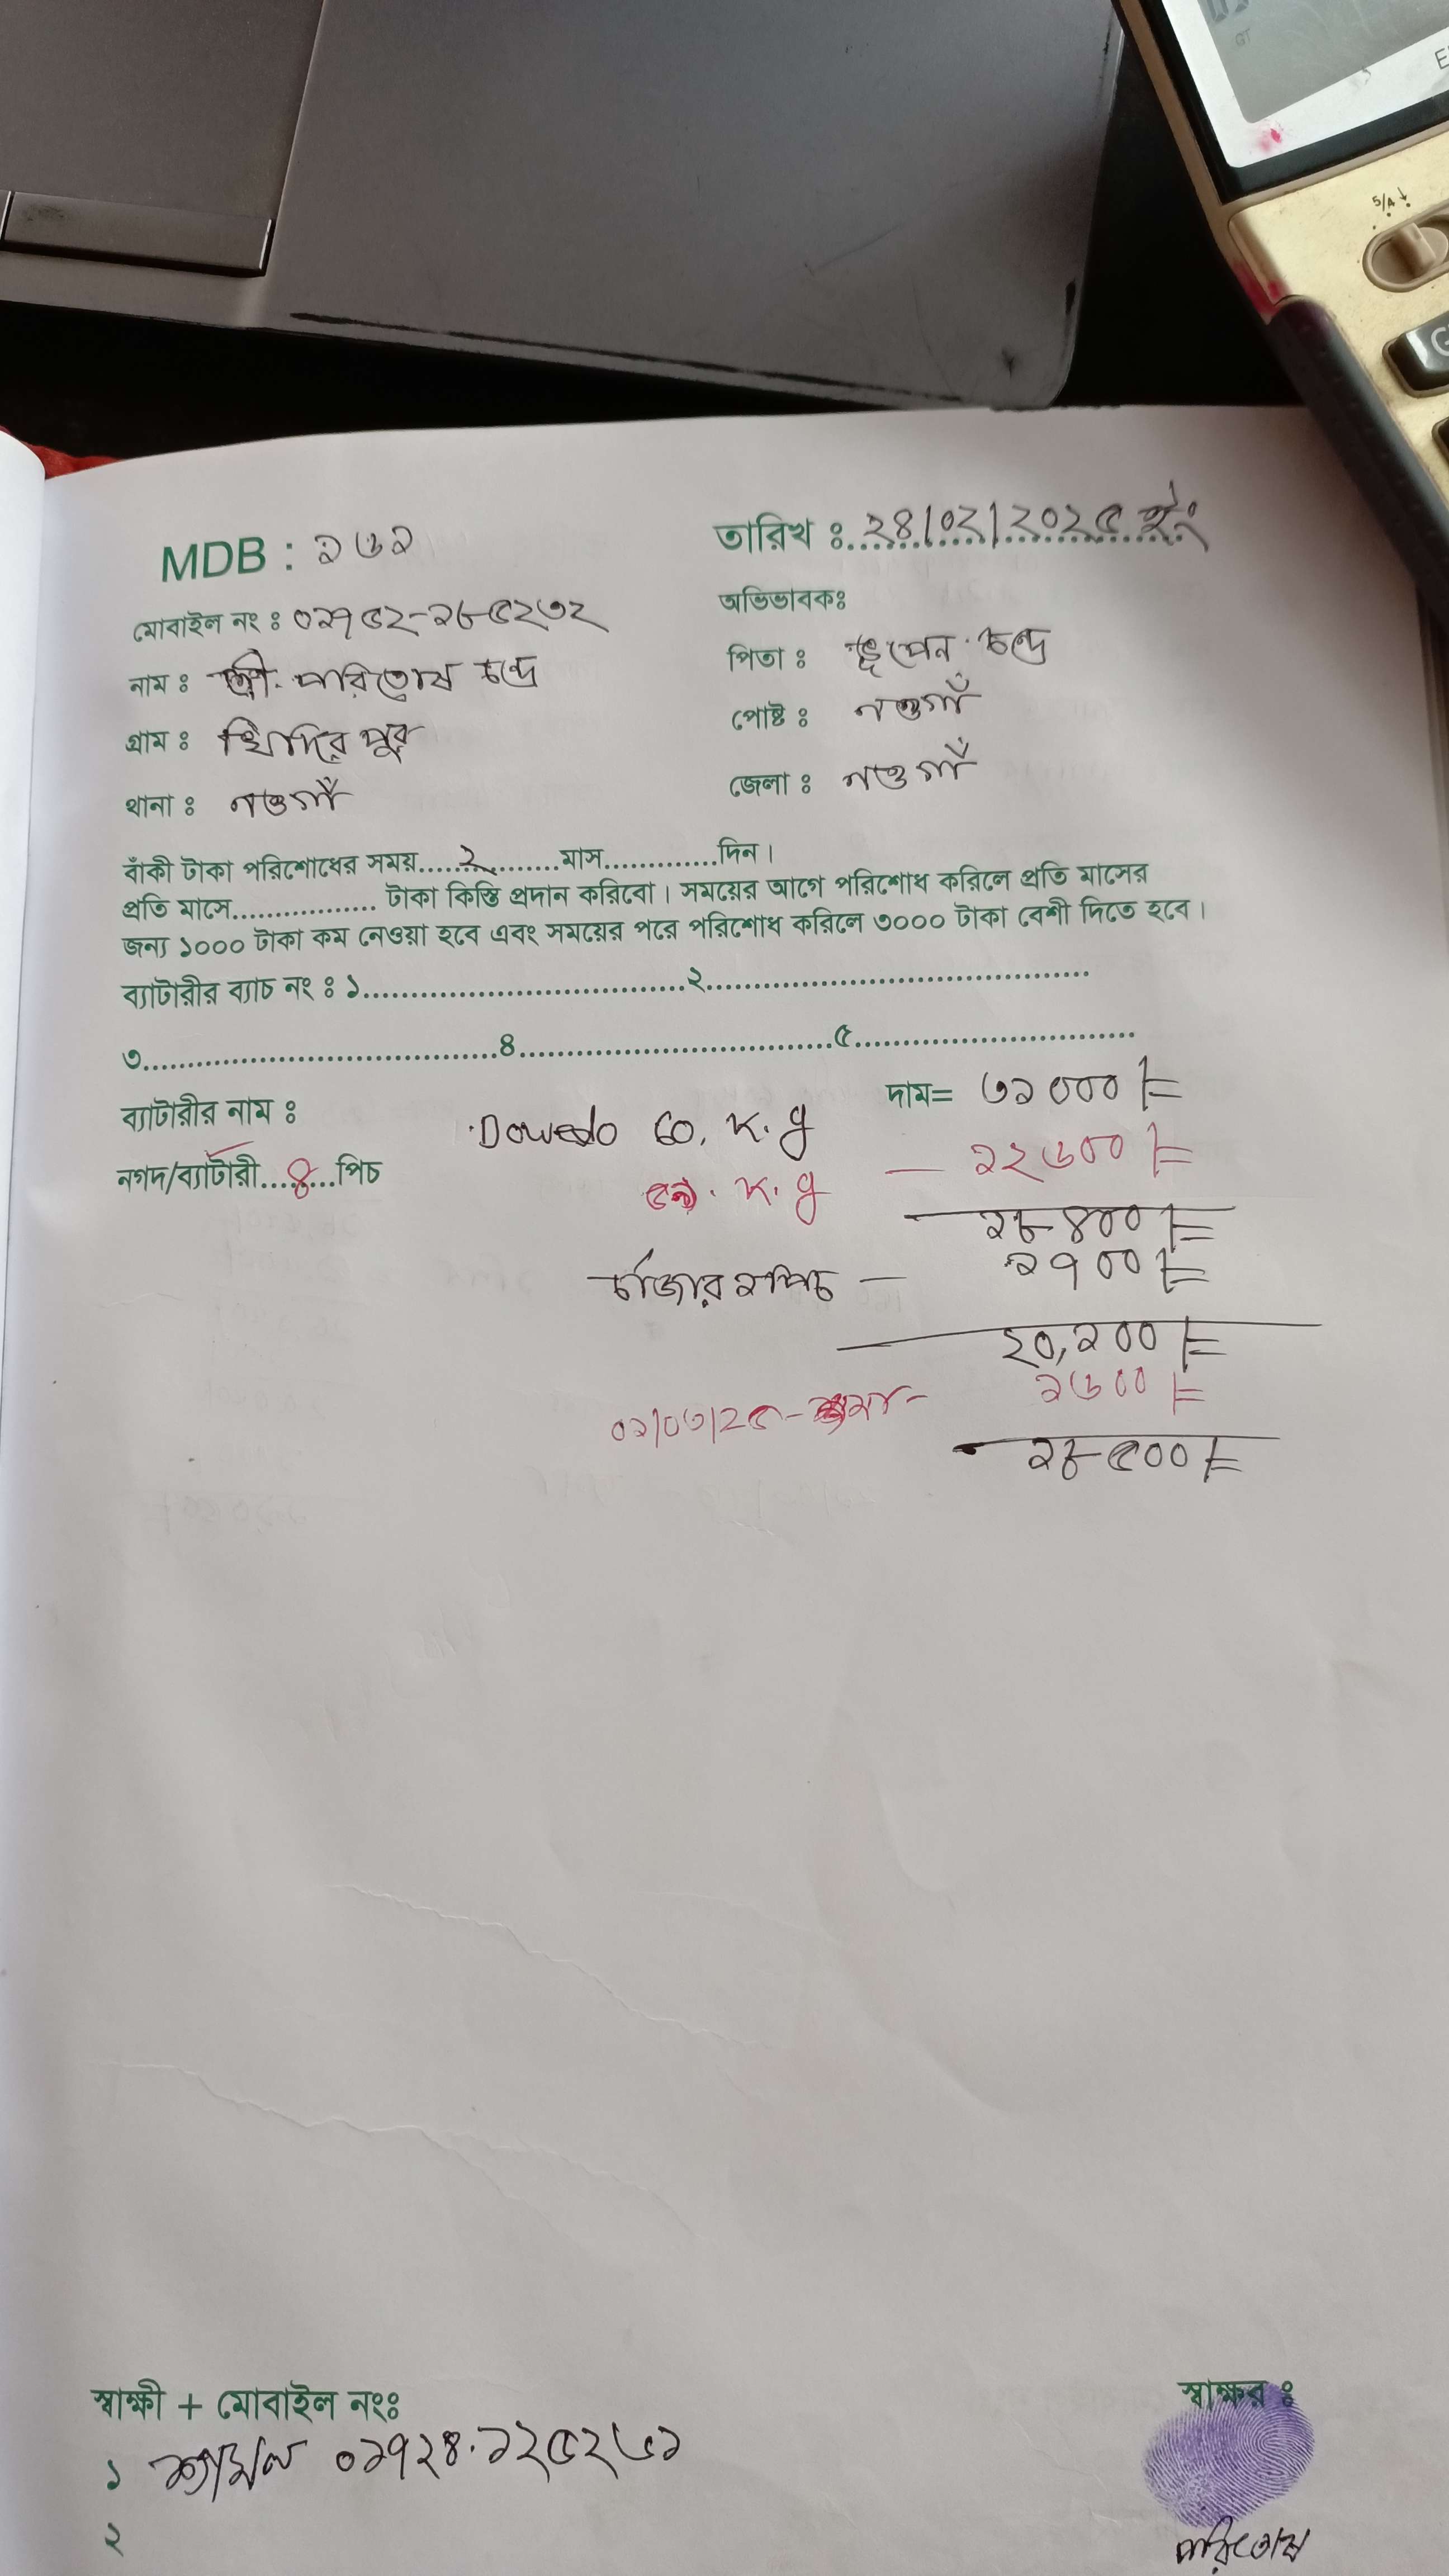 MDB : ১৬১
তারিখ ঃ ২৪/০২/২০২৫ ইং
মোবাইল নং ঃ ০১৭৫২-১৮৫২৩২
অভিভাবকঃ
নাম ঃ শ্রী. পরিতোষ চন্দ্র
পিতা ঃ ভূপেন চন্দ্র
গ্রাম ঃ খিদিরপুর
পোষ্ট ঃ নওগাঁ
থানা ঃ নওগাঁ
জেলা ঃ নওগাঁ
বাঁকী টাকা পরিশোধের সময়.....২.........মাস.............দিন।
প্রতি মাসে................. টাকা কিস্তি প্রদান করিবো। সময়ের আগে পরিশোধ করিলে প্রতি মাসের
জন্য ১০০০ টাকা কম নেওয়া হবে এবং সময়ের পরে পরিশোধ করিলে ৩০০০ টাকা বেশী দিতে হবে।
ব্যাটারীর ব্যাচ নং ঃ ১....................................২..........................................
৩.......................................৪...................................৫...............................
ব্যাটারীর নাম ঃ Dowedo 60. K.g দাম= ৩১০০০/=
নগদ/ব্যাটারী....৪....পিচ K.g — ১২৬০০/=
১৮৪০০/=
চার্জার ১পিচ — ১৭০০/=
২০,১০০/=
০১/০৩/২৫ - জমা - ১৬০০/=
১৮৫০০/=
স্বাক্ষী + মোবাইল নংঃ
স্বাক্ষর ঃ
১ শ্যামল ০১৭২৪.১২৫২৬১
২
পরিতোষ